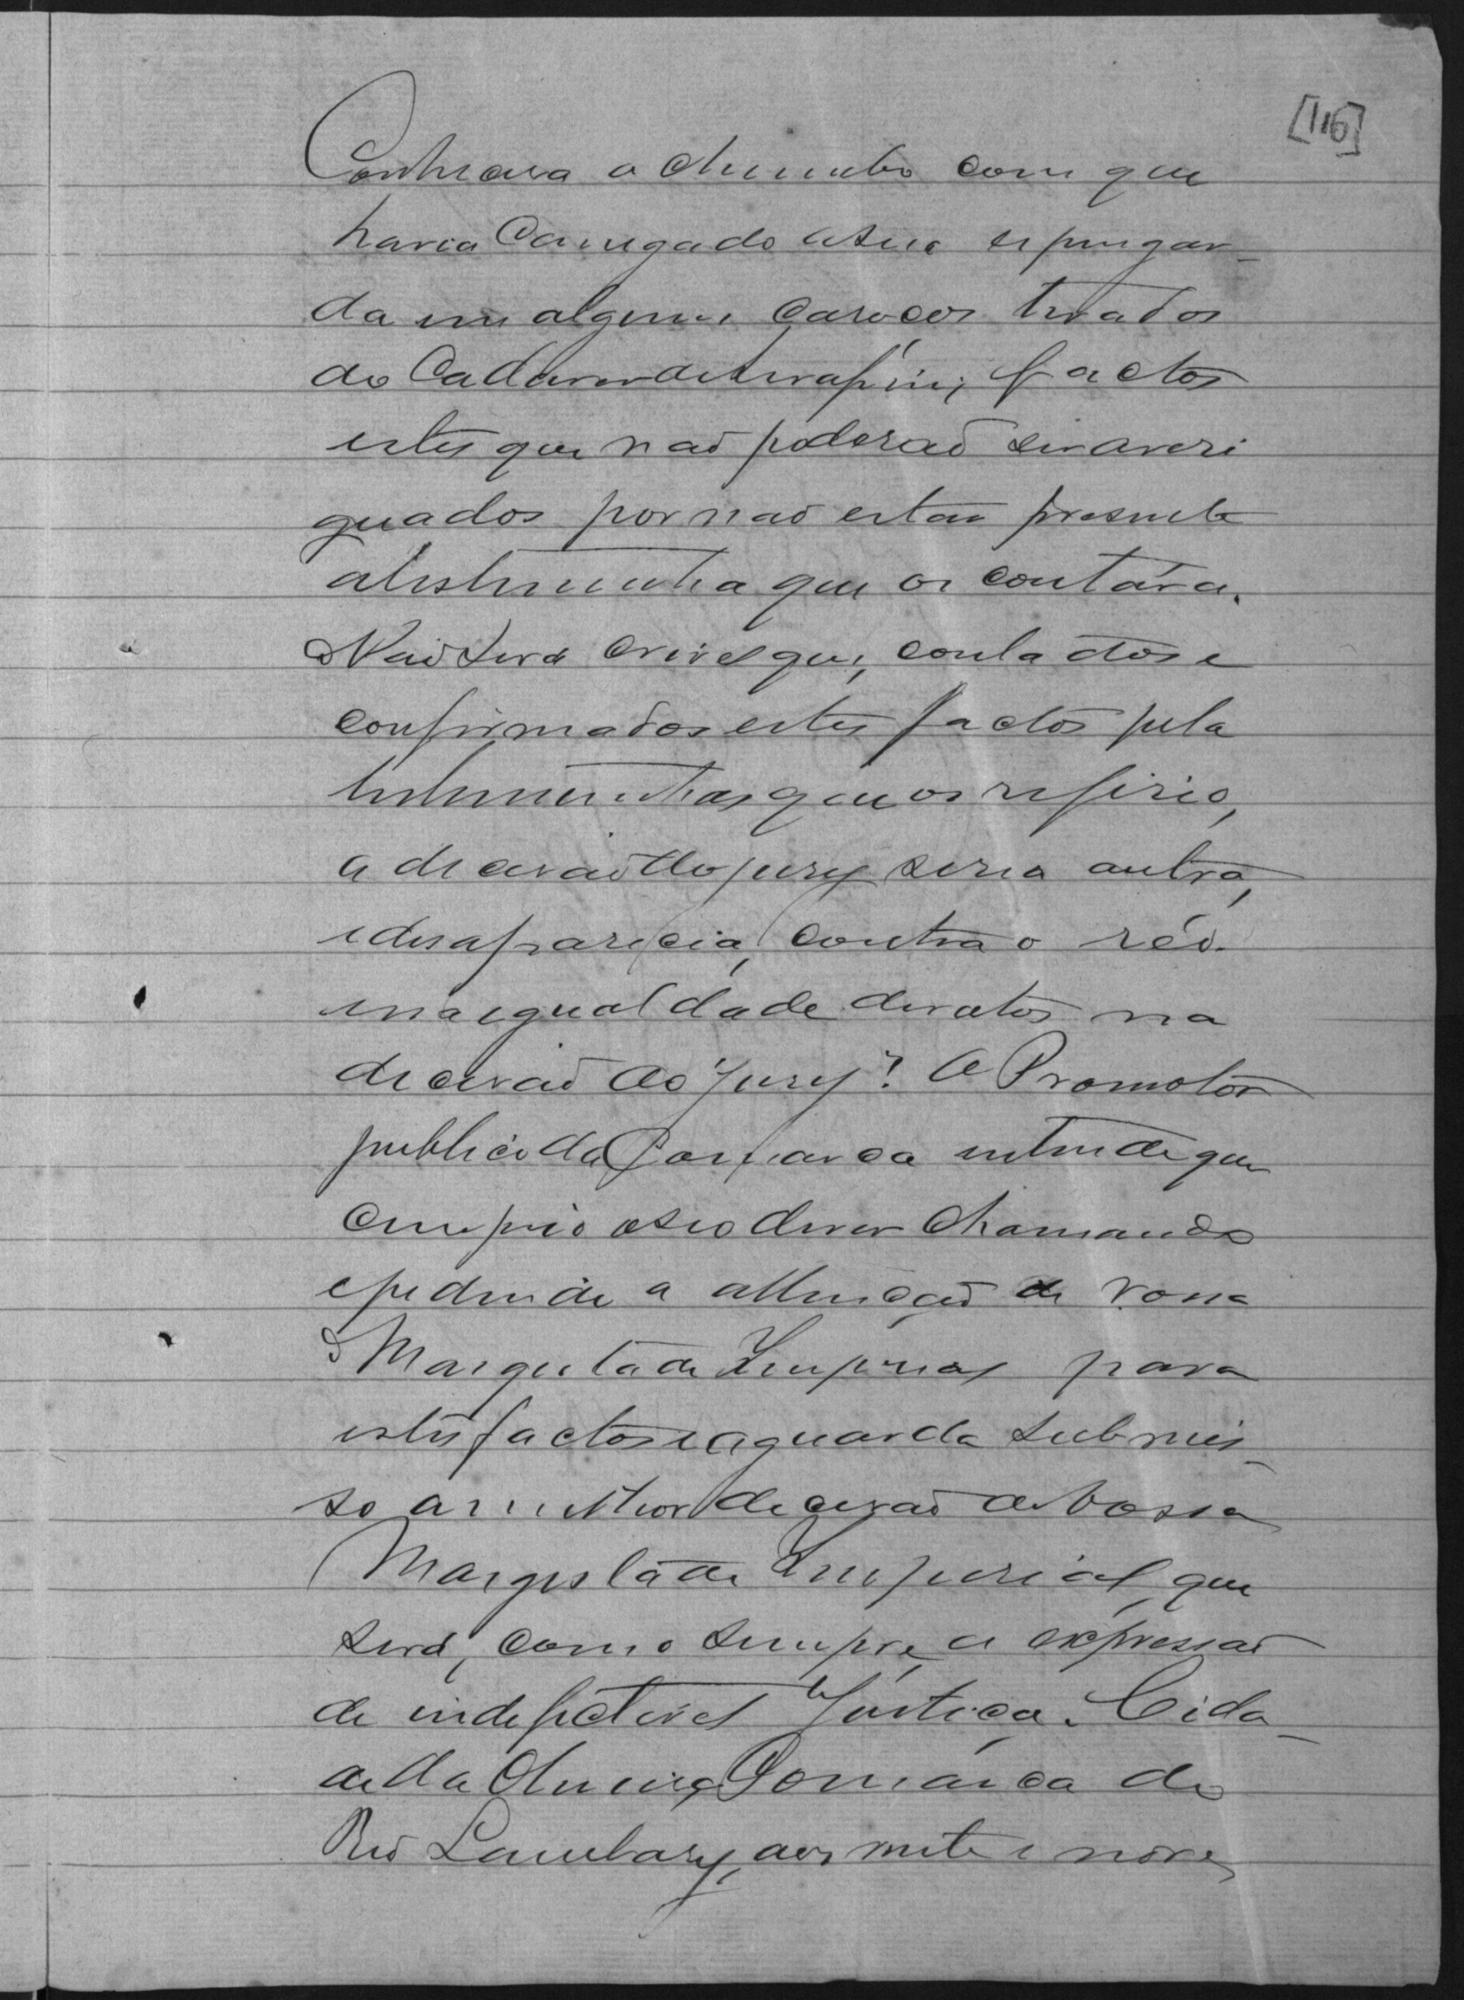 [116]
Conhecera o chumbo com que
havia carregado a sua espingar-
da em alguns caroços tirados
do Cadaver de Serafim; factos
estes que não poderão ser averi
guados por não estar presente
a testemunha que os contára.
Não será crivel que, contados e
confirmados estes factos pela
testemunhas que os referio,
a decisão do jury seria outra,
e desaparecia, contra o réo.
essa egualdade de votos na
decisão do jury? O Promotor
publico da Comarca entende que
cumprio o seo dever chamando
e pedindo a attenção de Vossa
Magestade Imperial para
estes factos e aguarda submis-
so a melhor decisão de Vossa
Magestade Imperial, que
será, como sempre, a expressão
de indefectivel Justiça. Cida-
de da Comarca do
Rio Lambary, aos vinte e nove